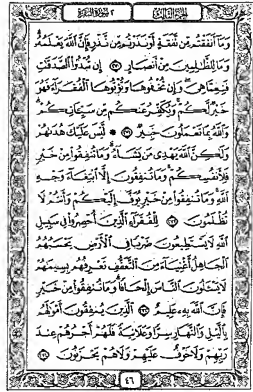 الجزء الثالث ٢ سورة البقرة
وَمَا أَنفَقْتُم مِّن نَّفَقَةٍ أَوْ نَذَرْتُم مِّن نَّذْرٍ فَإِنَّ ٱللَّهَ يَعْلَمُهُۥ
وَمَا لِلظَّٰلِمِينَ مِنْ أَنصَارٍ ٢٧٠ إِن تُبْدُوا۟ ٱلصَّدَقَٰتِ
فَنِعِمَّا هِىَ وَإِن تُخْفُوهَا وَتُؤْتُوهَا ٱلْفُقَرَآءَ فَهُوَ
خَيْرٌ لَّكُمْ وَيُكَفِّرُ عَنكُم مِّن سَيِّـَٔاتِكُمْ
وَٱللَّهُ بِمَا تَعْمَلُونَ خَبِيرٌ ٢٧١ لَّيْسَ عَلَيْكَ هُدَىٰهُمْ
وَلَٰكِنَّ ٱللَّهَ يَهْدِى مَن يَشَآءُ وَمَا تُنفِقُوا۟ مِنْ خَيْرٍ
فَلِأَنفُسِكُمْ وَمَا تُنفِقُونَ إِلَّا ٱبْتِغَآءَ وَجْهِ
ٱللَّهِ وَمَا تُنفِقُوا۟ مِنْ خَيْرٍ يُوَفَّ إِلَيْكُمْ وَأَنتُمْ لَا
تُظْلَمُونَ ٢٧٢ لِلْفُقَرَآءِ ٱلَّذِينَ أُحْصِرُوا۟ فِى سَبِيلِ
ٱللَّهِ لَا يَسْتَطِيعُونَ ضَرْبًا فِى ٱلْأَرْضِ يَحْسَبُهُمُ
ٱلْجَاهِلُ أَغْنِيَآءَ مِنَ ٱلتَّعَفُّفِ تَعْرِفُهُم بِسِيمَٰهُمْ
لَا يَسْـَٔلُونَ ٱلنَّاسَ إِلْحَافًا وَمَا تُنفِقُوا۟ مِنْ خَيْرٍ
فَإِنَّ ٱللَّهَ بِهِۦ عَلِيمٌ ٢٧٣ ٱلَّذِينَ يُنفِقُونَ أَمْوَٰلَهُم
بِٱلَّيْلِ وَٱلنَّهَارِ سِرًّا وَعَلَانِيَةً فَلَهُمْ أَجْرُهُمْ عِندَ
رَبِّهِمْ وَلَا خَوْفٌ عَلَيْهِمْ وَلَا هُمْ يَحْزَنُونَ ٢٧٤
٤٦